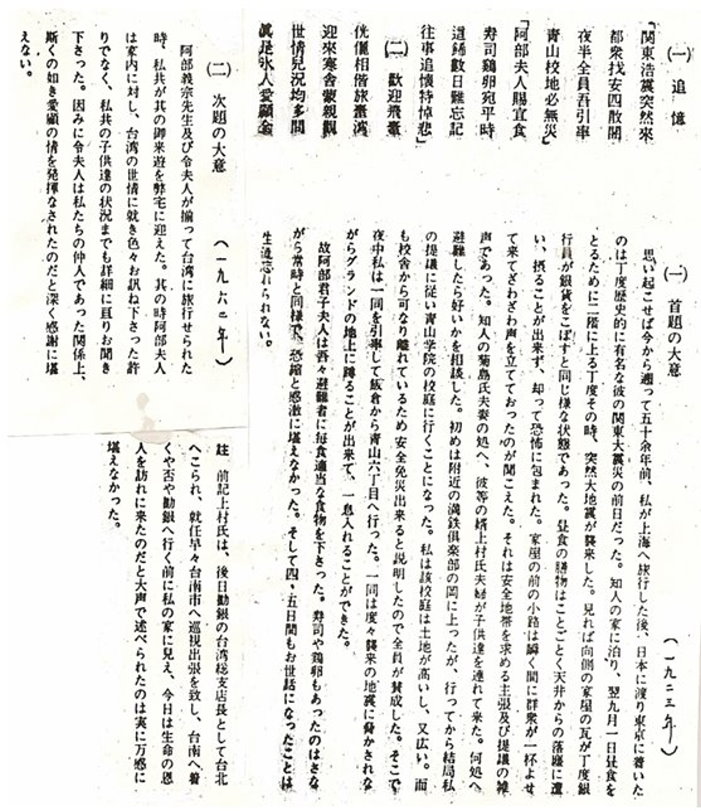 (一) 追憶
「関東浩震突然來
都衆找安四散開
夜半全員吾引率
青山校地必無災」
「阿部夫人賜宜食
寿司鷄卵宛平時
這餘數日難忘記
往事追懷特悼悲」
(二) 歡迎飛臺
伉儷相偕旅臺灣
迎來寒舍蒙親觀
世情兒況均多問
眞是氷人愛顧金
(一) 首題の大意 (一九二三年)
思い起こせば今から遡って五十余年前、私が上海へ旅行した後、日本に渡り東京に着いた
のは丁度歴史的に有名な彼の関東大震災の前日だった。知人の家に泊り、翌九月一日昼食を
とるために二階に上る丁度その時、突然大地震が襲来した。見れば向側の家屋の瓦が丁度銀
行員が銀貨をこぼすと同じ様な状態であった。昼食の膳物はことごとく天井からの落塵に遭
い、摂ることが出来ず、却って恐怖に包まれた。家屋の前の小路は瞬く間に群衆が一杯よせ
て来てざわざわ声を立てておったのが聞こえた。それは安全地帯を求める主張及び提議の雑
声であった。知人の菊島氏夫妻の処へ、彼等の婿上村氏夫婦が子供達を連れて来た。何処へ
避難したら好いかを相談した。初めは附近の満鉄倶楽部の岡に上ったが、行ってから結局私
の提議に従い青山学院の校庭に行くことになった。私は該校庭は土地が高いし、又広い。而
も校舎から可なり離れているため安全免災出来ると説明したので全員が賛成した。そこで
夜中私は一同を引率して飯倉から青山六丁目へ行った。一同は度々襲来の地震に脅かされな
がらグランドの地上に蹲ることが出来て、一息入れることができた。
故阿部君子夫人は吾々避難者に毎食適当な食物を下さった。寿司や鶏卵もあったのはさな
がら常時と同様で、恐縮と感激に堪えなかった。そして四、五日間もお世話になったことは
生涯忘れられない。
(二) 次題の大意 (一九六二年)
阿部義宗先生及び令夫人が揃って台湾に旅行せられた
時、私共が其の御来遊を弊宅に迎えた。其の時阿部夫人
は家内に対し、台湾の世情に就き色々お訊ね下さった許
りでなく、私共の子供達の状況までも詳細に亘りお聞き
下さった。因みに令夫人は私たちの仲人であった関係上、
斯くの如き愛顧の情を発揮なされたのだと深く感謝に堪
えない。
註 前記上村氏は、後日勧銀の台湾総支店長として台北
へこられ、就任早々台南市へ巡視出張を致し、台南へ着
くや否や勧銀へ行く前に私の家に見え、今日は生命の恩
人を訪れに来たのだと大声で述べられたのは実に万感に
堪えなかった。